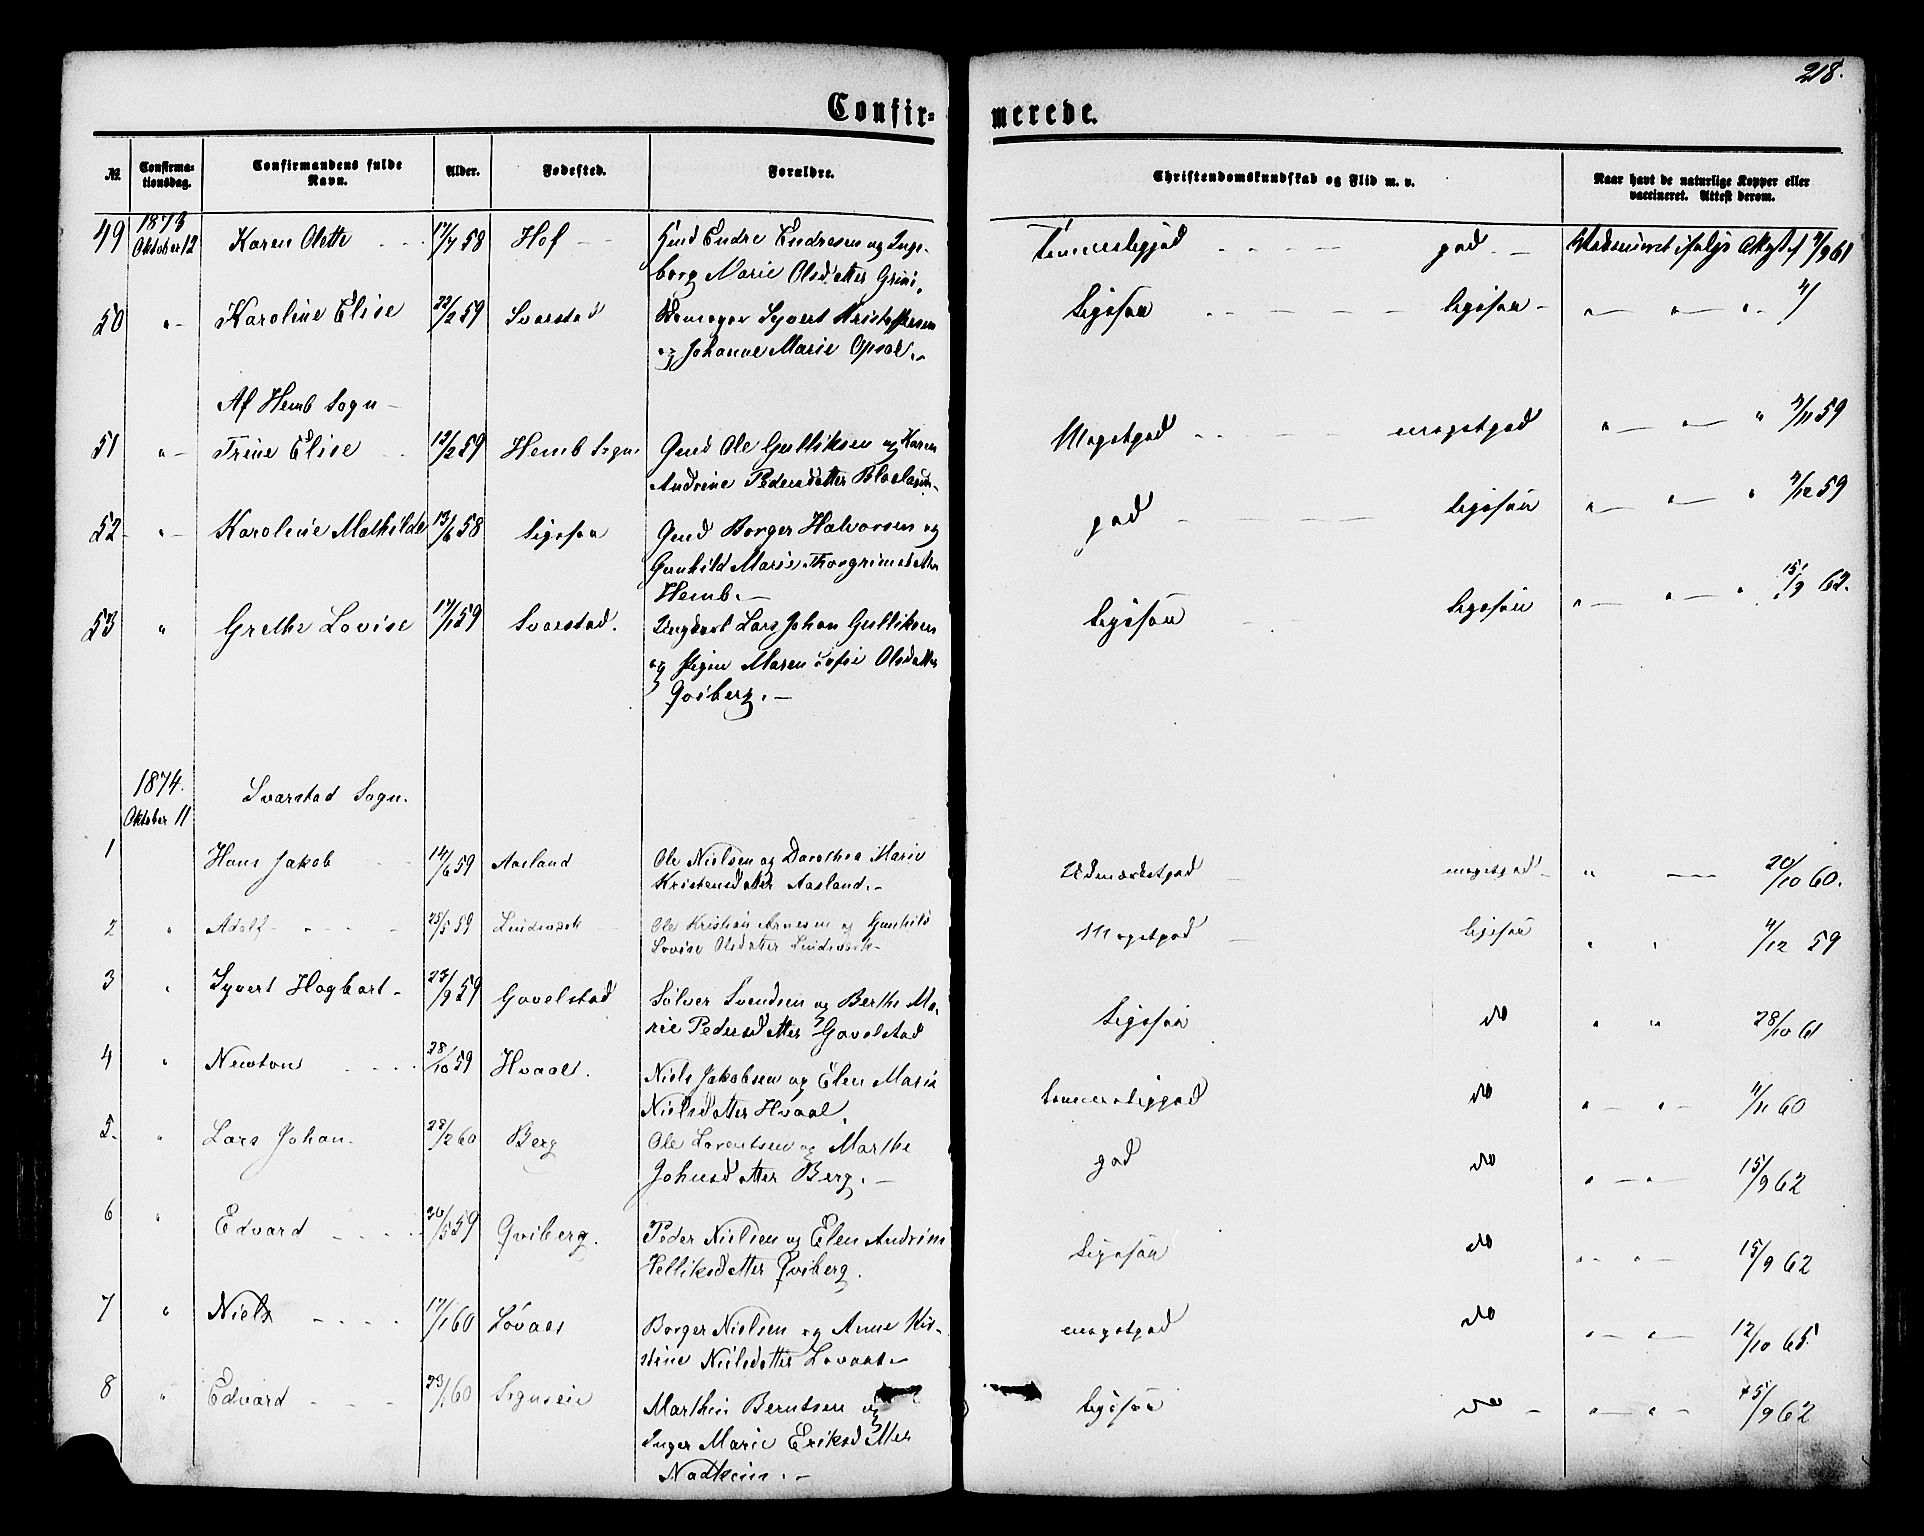 218.
Confir- merede.
No. Confirmationsdag. Confirmandens fulde Navn. Alder. Fødested. Forældre. Christendomskundskab og Flid m. v. Naar havt de naturlige Kopper eller vaccineret. Attest derom.
1873
49 Oktober 12 Karen Olette 17/7 58 Hof Gmd Endre Endresen og Inge- Temmeliggod god Vaksineret ifølge Attest af 9 61
borg Marie Olsdatter Grini.
50 " Karoline Elise 22/2 59 Svarstad Syvert Kristoffersen Ligesaa ligesaa " " "
og Johanne Marie Opsal.
Af Hemb Sogn
51 " Trine Elise 12/2 59 Hemb Sogn Gmd Ole Gulliksen og Karen Megetgod megetgod " " " 11 59
Andrine Pedersdatter
52 " Karoline Mathilde 13/6 58 Ligesaa Gmd Borger Halvorsen og god ligesaa " " " 12 59
Gunhild Marie Thorgrimsdatter
Hemb.
53 " Grethe Lovise 17/1 59 Svarstad. Ungkarl Lars Johan Gulliksen Ligesaa ligesaa " " " 15/9 62.
og Pigen Maren Sofie Olsdatter
Qviberg.
1874.
Oktober 11 Svarstad Sogn.
1 Hans Jakob 14/6 59 Aasland Ole Nielsen og Dorothea Marie Udmærketgod megetgod " 20/10 60.
Kristensdatter Aasland.
2 " Adolf 25/5 59 Ole Kristian Arnesen og Gunhild Megetgod ligesaa " " 4/12 59
Lovise Olsdatter
3 " Syvert Hagbart 23/9 59 Gavelstad Sølver Svendsen og Berthe Ma- Ligesaa do " " 28/10 61
rie Pedersdatter Gavelstad
4 " Newton 28/10 59 Hvaal. Niels Jakobsen og Elen Marie temmeliggod do " " 4/11 60
Nielsdatter Hvaal.
5. " Lars Johan. 28/2 60 Berg Ole Lorentsen og Marthe god do " " 15/9 62
Johnsdatter Berg.
6 " Edvard 20/5 59 Qviberg. Peder Nielsen og Elen Andrine Ligesaa do " " 15/9 62
Qviberg.
7 " Niels 17/1 60 Løvaas Borger Nielsen og Anne Kir- megetgod do " " 12/10 65
stine Nielsdatter Lovaas
8 " Edvard 23/1 60 Marthin Berntsen og Ligesaa do " " 15/9 62
Inger Marie Eriksdatter